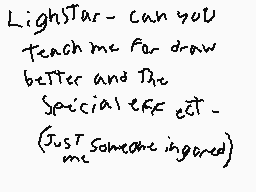 Lighstar - can you
teach me for draw
better and The
Spicial eff ect -
(Just someone ingored)
me